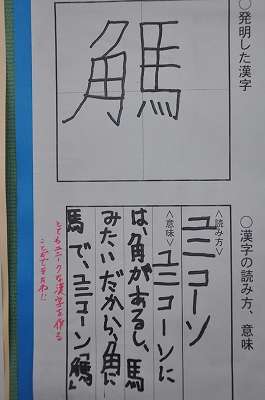 ○発明した漢字
⿰角馬
○漢字の読み方、意味
<読み方>
ユニコーン
<意味>
ユニコーンに
は、角があるし、馬
みたいだから、角に
馬で、ユニコーン「⿰角馬」
とてもユニークな漢字を作る
ことができたね